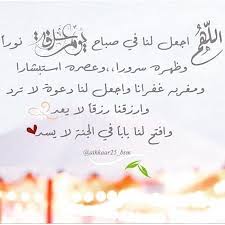 اللهم اجعل لنا في صباح يوم عرفة نوراً
وظهره سرورا،،وعصره استبشارا
ومغربه غفرانا واجعل لنا دعوة لا ترد
وارزقنا رزقاً لا يعد
وافتح لنا باباً في الجنة لا يسد
@athkaar25_bsm